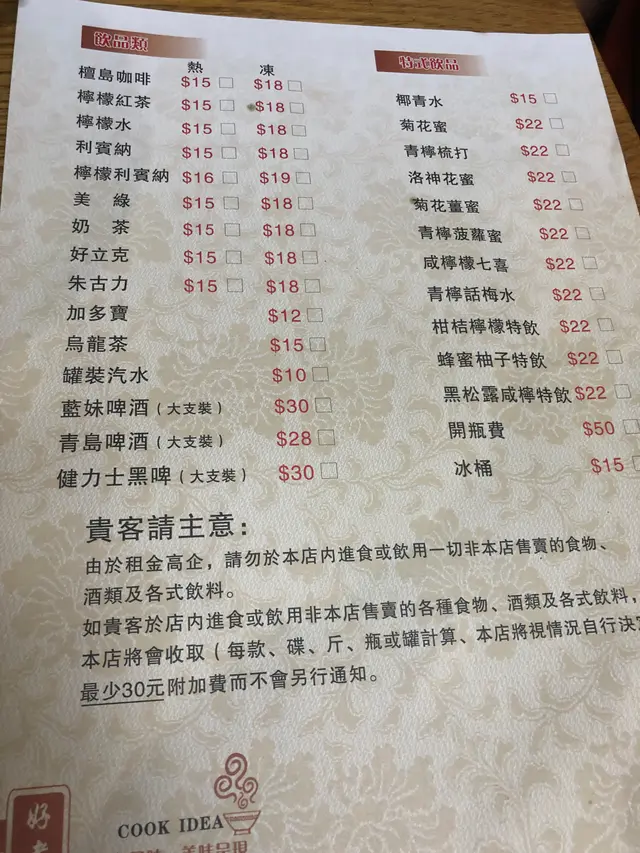 飲品類
熱 凍
檀島咖啡 $15 $18
檸檬紅茶 $15 $18
檸檬水 $15 $18
利賓納 $15 $18
檸檬利賓納 $16 $19
美綠 $15 $18
奶茶 $15 $18
好立克 $15 $18
朱古力 $15 $18
加多寶 $12
烏龍茶 $15
罐裝汽水 $10
藍妹啤酒(大支裝) $30
青島啤酒(大支裝) $28
健力士黑啤(大支裝) $30
特式飲品
椰青水 $15
菊花蜜 $22
青檸梳打 $22
洛神花蜜 $22
菊花薑蜜 $22
青檸菠蘿蜜 $22
咸檸檬七喜 $22
青檸話梅水 $22
柑桔檸檬特飲 $22
蜂蜜柚子特飲 $22
黑松露咸檸特飲 $22
開瓶費 $50
冰桶 $15
貴客請主意:
由於租金高企,請勿於本店內進食或飲用一切非本店售賣的食物、
酒類及各式飲料。
如貴客於店內進食或飲用非本店售賣的各種食物、酒類及各式飲料,
本店將會收取(每款、碟、斤、瓶或罐計算、本店將視情況自行決
最少30元附加費而不會另行通知。
好
COOK IDEA